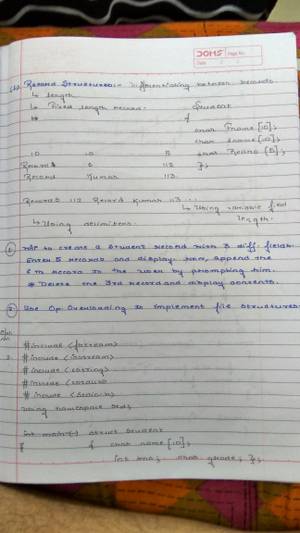 DOMS
Page No.
Date / /
Record Structures:- Differentiating between records.
↳ length
↳ Fixed length record:- Student
{
char Fname[10];
char Lname[10];
10 10 5 char Rollno[5];
6 112 };
Kumar 113
112 Kumar 113
↳ Using variable field
length.
↳ Using delimiters.
① WAP to create a Student record with 3 diff. fields.
Enter 5 records and display them, append the
6th record to the user by prompting him.
* Delete the 3rd record and display contents.
② Use Op. Overloading to implement file structures.
# include <fstream>
# include <iostream>
# include <cstring>
# include
# include
using namespace std;
int main() struct Student
{ { char name[10];
int char grade; };